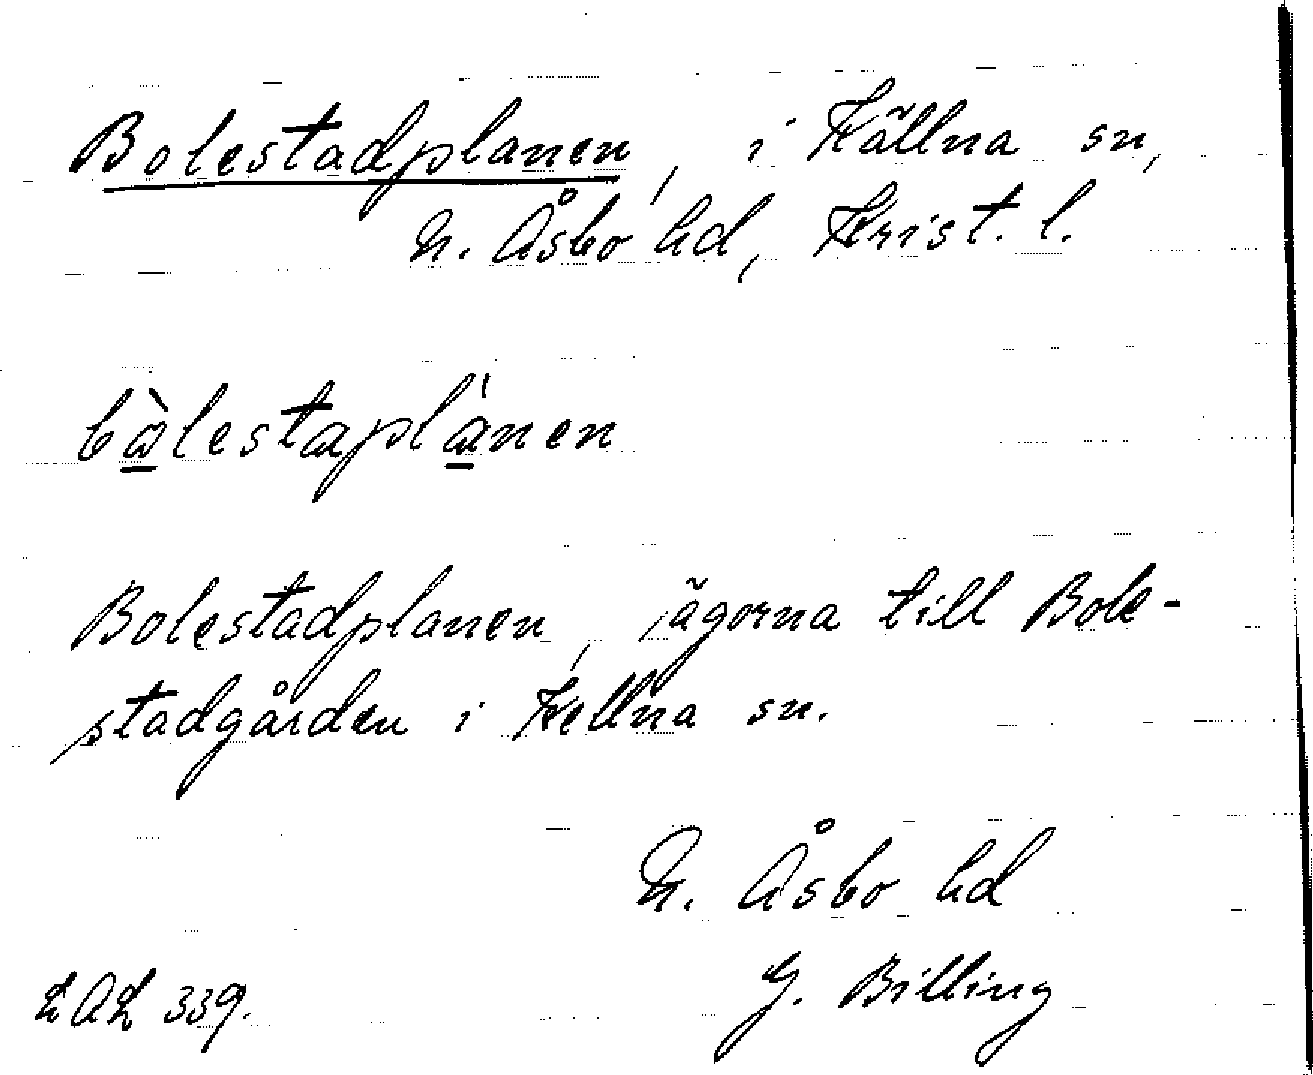 Bolestadplanen, i Källna sn,
N. Åsbo hd, Krist. l.
bòlestaplánen
Bolestadplanen, ägorna till Bole-
stadgården i Kellna sn.
N. Åsbo hd
G. Billing
LAL 339.